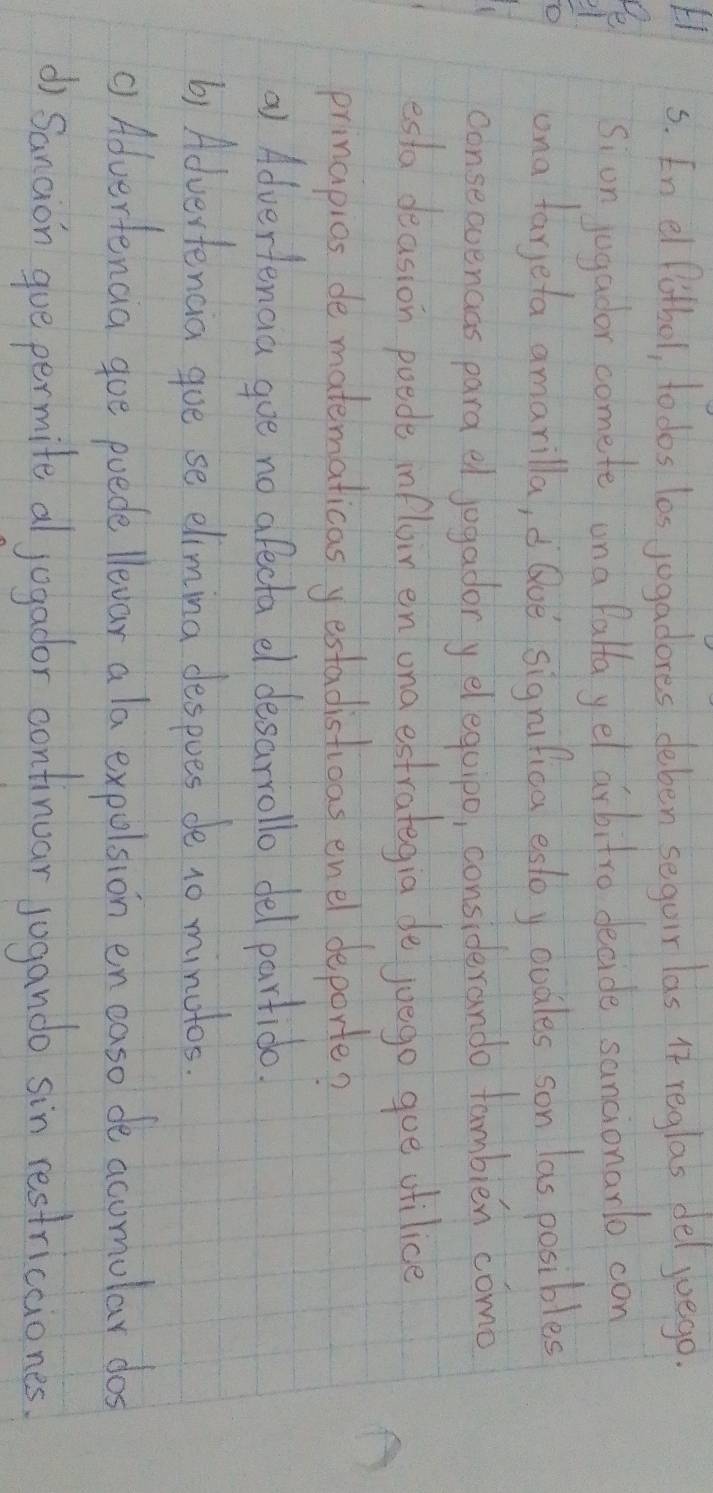 5. En el fútbol, todos los jugadores deben seguir las 17 reglas del juego.
Si un jugador comete una falta y el árbitro decide sancionarlo con
una tarjeta amarilla, ¿Qué significa esto y cuáles son las posibles
consecuencias para el jugador y el equipo, considerando también cómo
esta decisión puede influir en una estrategia de juego que utilice
principios de matematicas y estadisticas en el deporte?
a) Advertencia que no afecta el desarrollo del partido.
b) Advertencia que se elimina despues de 10 minutos.
c) Advertencia que puede llevar a la expulsión en caso de acumular dos
d) Sanción que permite al jugador continuar jugando sin restricciones.